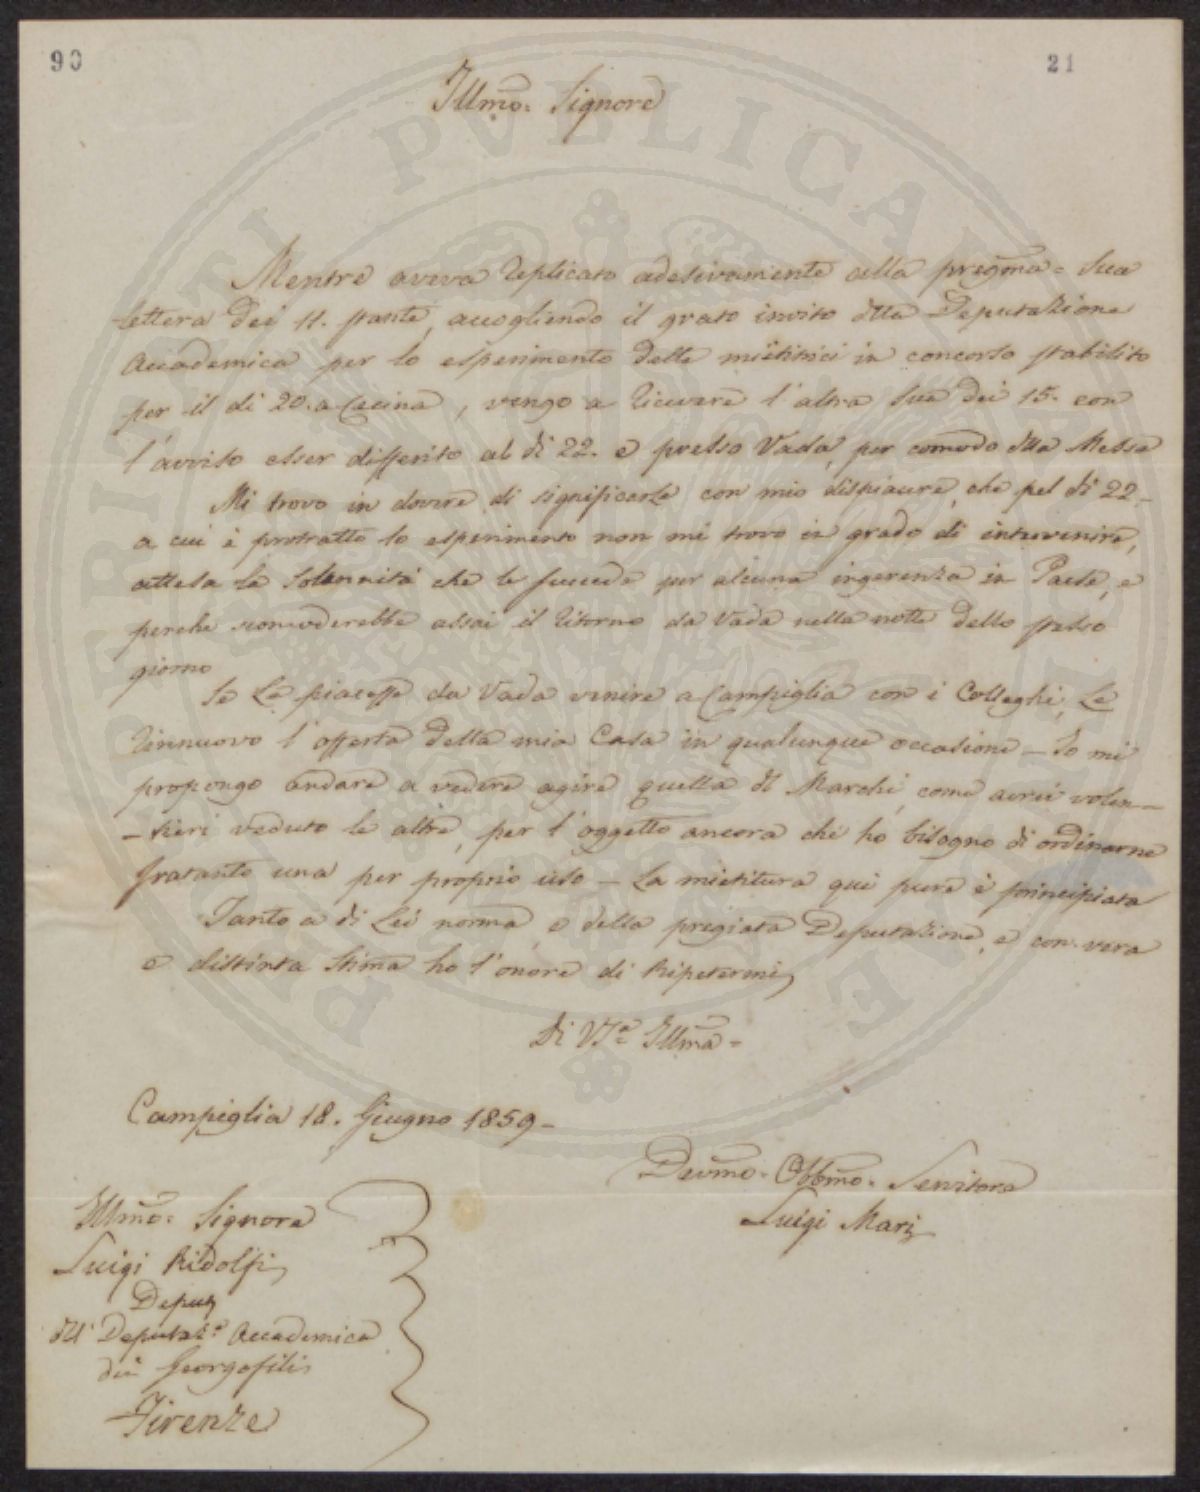 90
21
Illmo. Signore
Mentre aveva replicato adesivamente alla pregma. Sua
lettera dei 11. stante, accogliendo il grato invito della Deputazione
Accademica per lo esperimento delle mietitrici in concorso stabilito
per il di 20. a Cecina, vengo a ricevere l'altra Sua dei 15. con
l'avviso esser differito al di 22. e presso Vada, per comodo della Messe
Mi trovo in dovere di significarle con mio dispiacere, che pel di 22_
a cui è protratto lo esperimento non mi trovo in grado di intervenire,
attesa la Solennità che le succede per alcuna ingerenza in Paese, e
perche scomoderebbe assai il ritorno da Vada nella notte dello stesso
giorno
Se Le piacesse da Vada venire a Campiglia con i Colleghi, Le
rinnuovo l'offerta della mia Casa in qualunque occasione _ Io mi
propongo andare a vedere agire quella di Marchi, come avrei volen_
_tieri veduto le altre, per l'oggetto ancora che ho bisogno di ordinarne
fratanto una per proprio uso _ La mietitura qui pure è principiata
Tanto a di Lei norma, e della pregiata Deputazione, e con vera
e distinta Stima ho l'onore di Ripetermi
Di VSa Illma.
Campiglia 18. Giugno 1859_
Devmo. Obbmo. Servitore
Luigi Mari
Illmo. Signore
Luigi Ridolfi
Deput
dell' Deputaz.e Accademica
dei Georgofili
Firenze
PERITI PVBLICAE